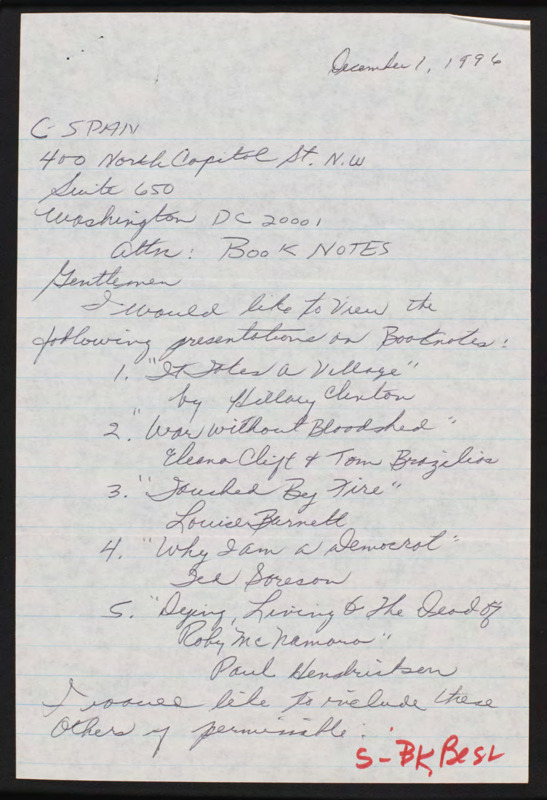 December 1, 1996
C-SPAN
400 North Capitol St. N.W
Suite 650
Washington DC 20001
Attn: BOOK NOTES
Gentlemen
I would like to view the
following presentations on Booknotes:
1. "It Takes a Village"
by Hillary Clinton
2. "War without Bloodshed"
Eleana Clift & Tom Brazilios
3. "Touched By Fire"
Louise Barnett
4. "Why I am a Democrat"
Ted Soreson
5. "Dying, Living & The Dead of
Roby McNamara"
Paul Hendricksen
I would like to include these
others if permissible:
S-BK Best